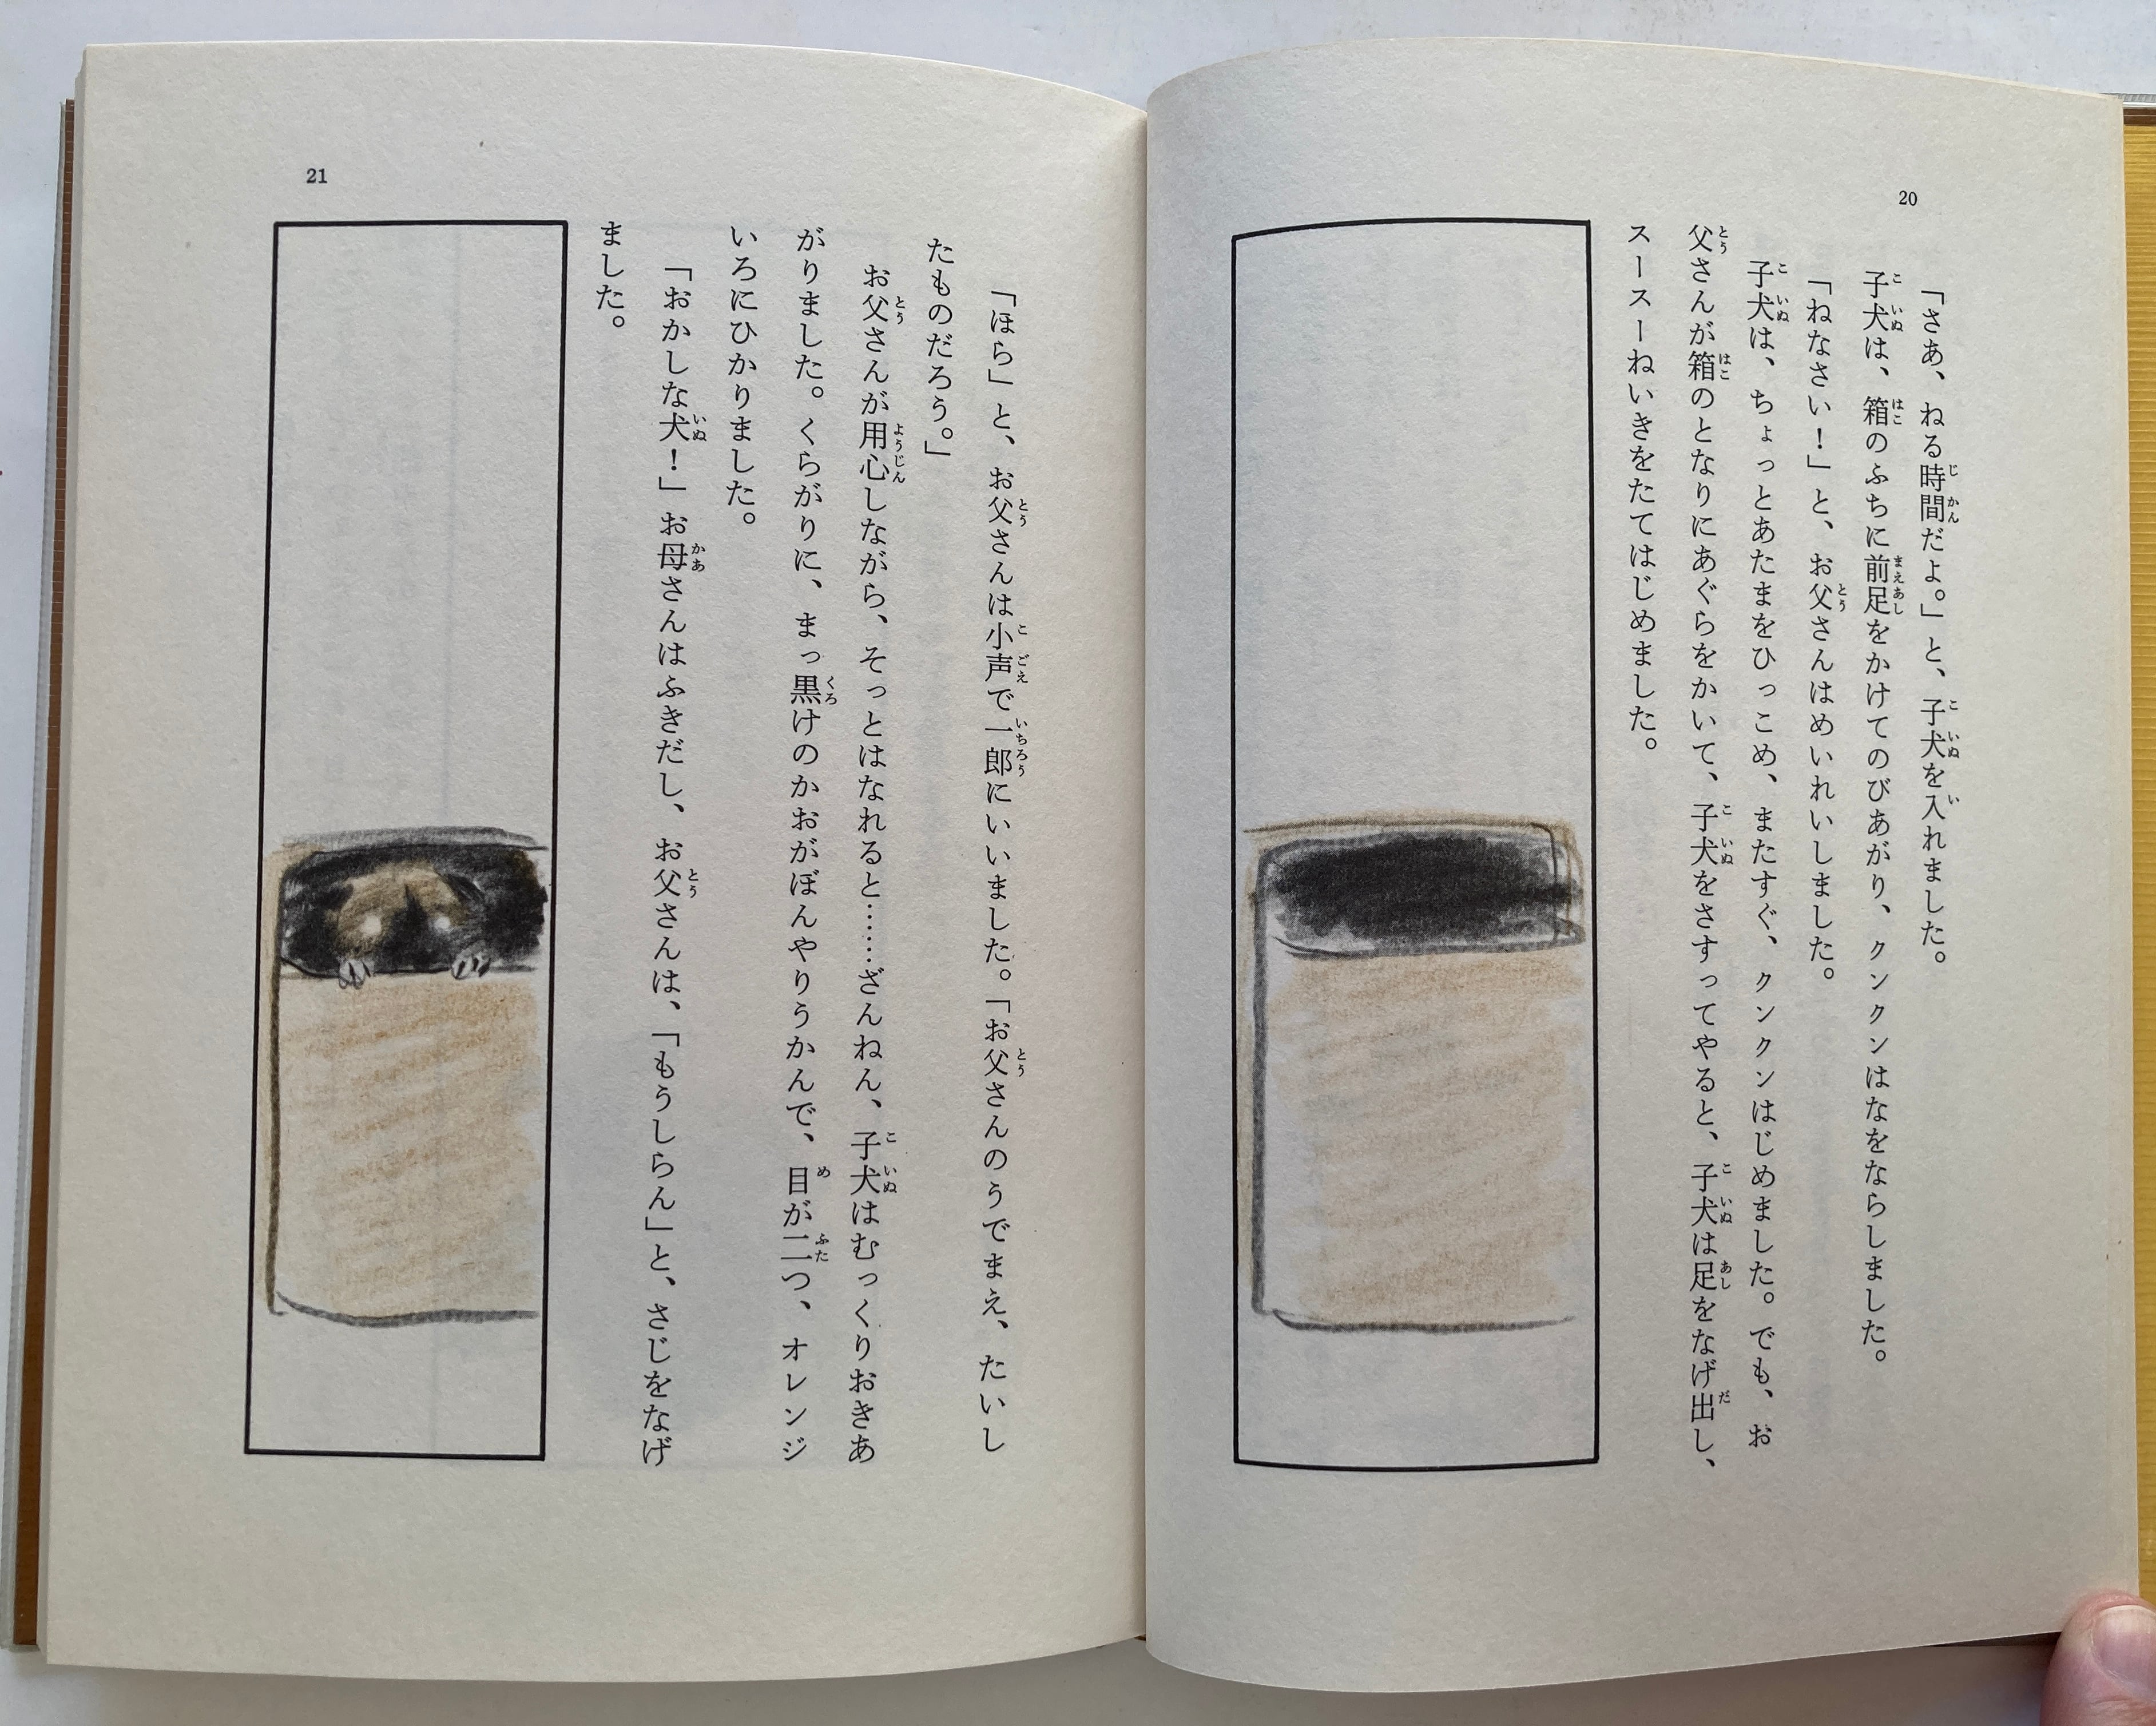 20
「さあ、ねる時間だよ。」と、子犬を入れました。
子犬は、箱のふちに前足をかけてのびあがり、クンクンはなをならしました。
「ねなさい！」と、お父さんはめいれいしました。
子犬は、ちょっとあたまをひっこめ、またすぐ、クンクンはじめました。でも、お
父さんが箱のとなりにあぐらをかいて、子犬をさすってやると、子犬は足をなげ出し、
スースーねいきをたてはじめました。
21
「ほら」と、お父さんは小声で一郎にいいました。「お父さんのうでまえ、たいし
たものだろう。」
お父さんが用心しながら、そっとはなれると……ざんねん、子犬はむっくりおきあ
がりました。くらがりに、まっ黒けのかおがぼんやりうかんで、目が二つ、オレンジ
いろにひかりました。
「おかしな犬！」お母さんはふきだし、お父さんは、「もうしらん」と、さじをなげ
ました。